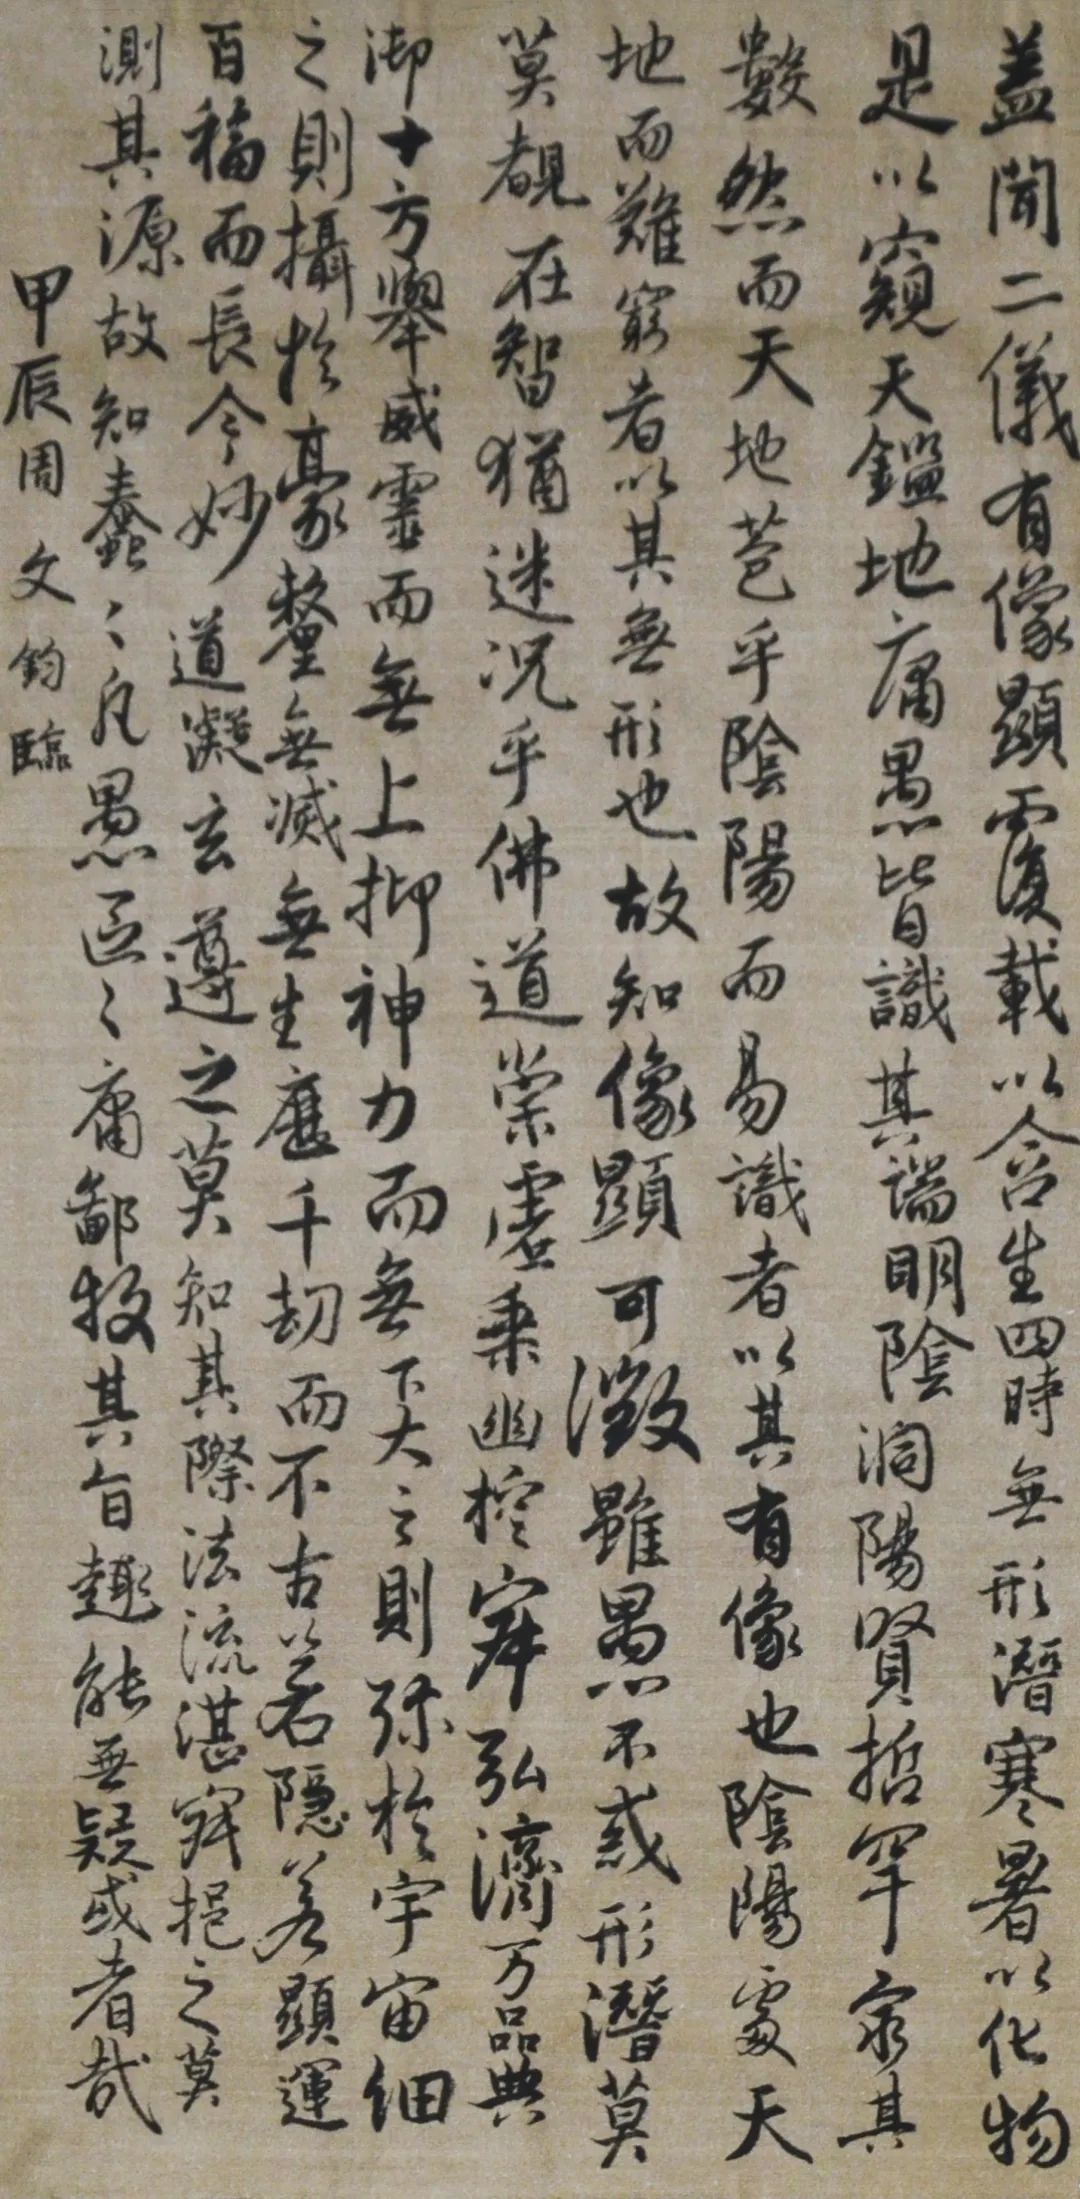 蓋聞二儀有像顯覆載以含生四時無形潛寒暑以化物
是以窺天鑑地庸愚皆識其端明陰洞陽賢哲罕窮其
數然而天地苞乎陰陽而易識者以其有像也陰陽處天
地而難窮者以其無形也故知像顯可徵雖愚不惑形潛莫
莫覩在智猶迷況乎佛道崇虛乘幽控寂弘濟万品典
御十方舉威靈而無上抑神力而無下大之則弥於宇宙細
之則攝於豪釐無滅無生歷千劫而不古若隱若顯運
百福而長今妙道凝玄遵之莫知其際法流湛寂挹之莫
測其源故知蠢々凡愚區々庸鄙投其旨趣能無疑或者哉
甲辰周文鈞臨